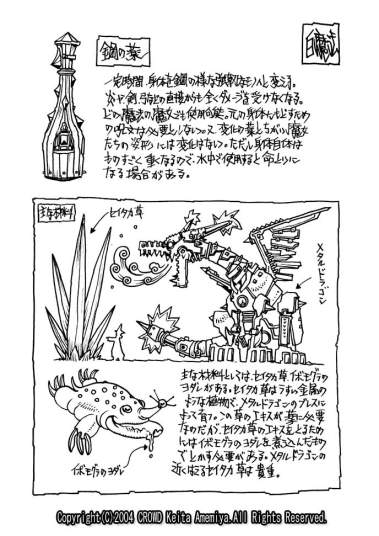 鋼の薬
白魔法
一定時間、身体を鋼の様な強靭なモノへと変える。
炎や剣、弓などの直接からも全くダメージを受けなくなる。
どの魔法の魔女でも使用可能。元の身体にもどすため
の呪文は必要としない。変化の薬とちがい、魔女
たちの姿形には変化はない。ただし身体自体は
ものすごく重くなるので、水中で使用すると命とりに
なる場合がある。
主な材料
セイタカ草
メタルドラゴン
主な材料としては、セイタカ草、イボモグラの
ヨダレがある。セイタカ草はうすい金属の
ような植物で、メタルドラゴンのブレスに
よって育つ。この草のエキスが薬に必要
なのだが、セイタカ草のエキスをとるため
にはイボモグラのヨダレを煮込んだもの
でとかす必要がある。メタルドラゴンの
近くにはえるセイタカ草は貴重。
イボモグラのヨダレ
Copyright(C)2004 CROWD Keita Amemiya.All Rights Reserved.